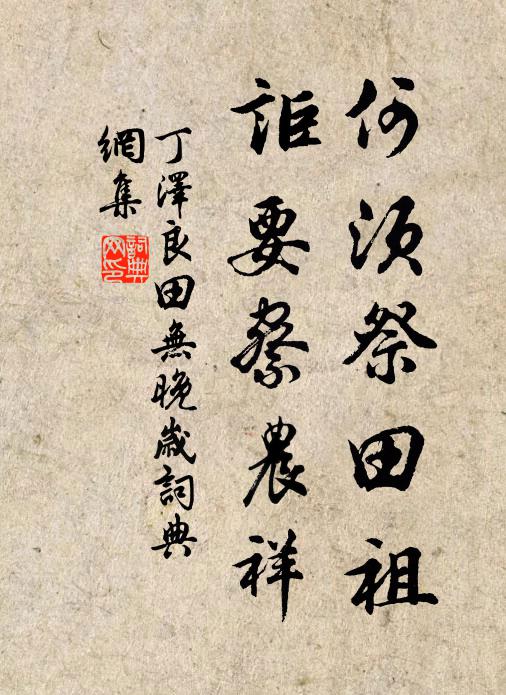 何須祭田祖
詎要察農祥
丁澤良田無晚歲詞典
網集
詞典
网印